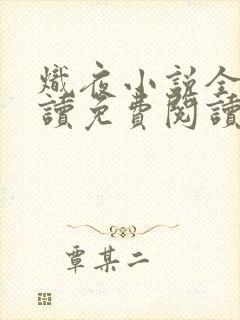 熾夜小說全
讀免費閱讀
覃某二